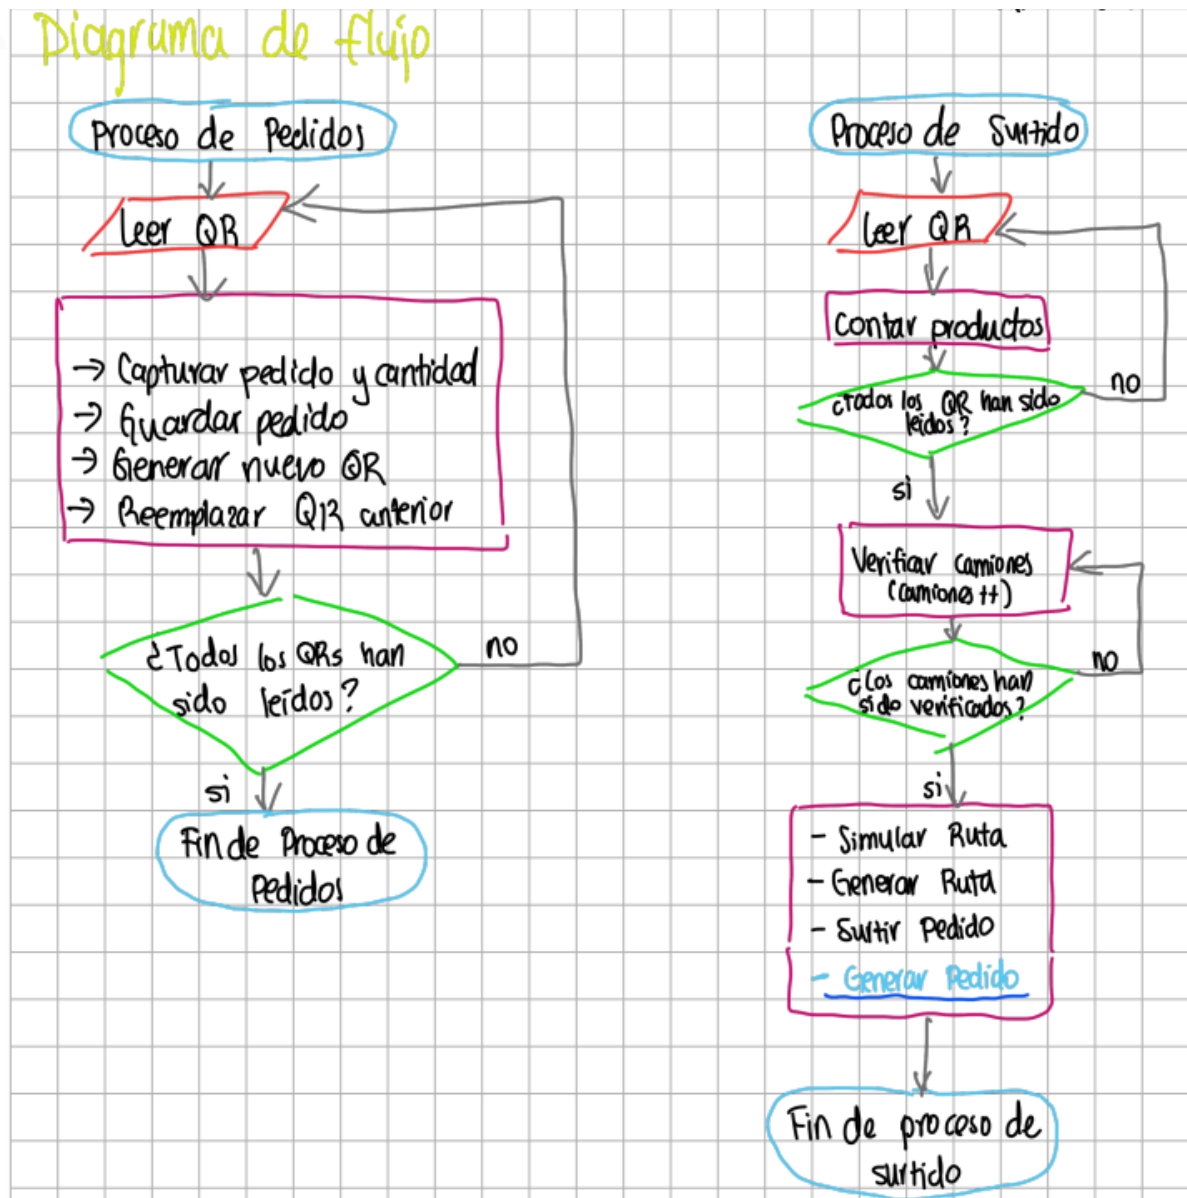 Diagrama de flujo
Proceso de Pedidos
Leer QR
→ Capturar pedido y cantidad
→ Guardar pedido
→ Generar nuevo QR
→ Reemplazar QR anterior
¿Todos los QRs han
sido leídos?
no
si
Fin de Proceso de
Pedidos
Proceso de Surtido
Leer QR
Contar productos
¿Todos los QR han sido
leidos?
no
si
Verificar camiones
(camiones ++)
¿Los camiones han
sido verificados?
no
si
- Simular Ruta
- Generar Ruta
- Surtir Pedido
- Generar Pedido
Fin de proceso de
surtido